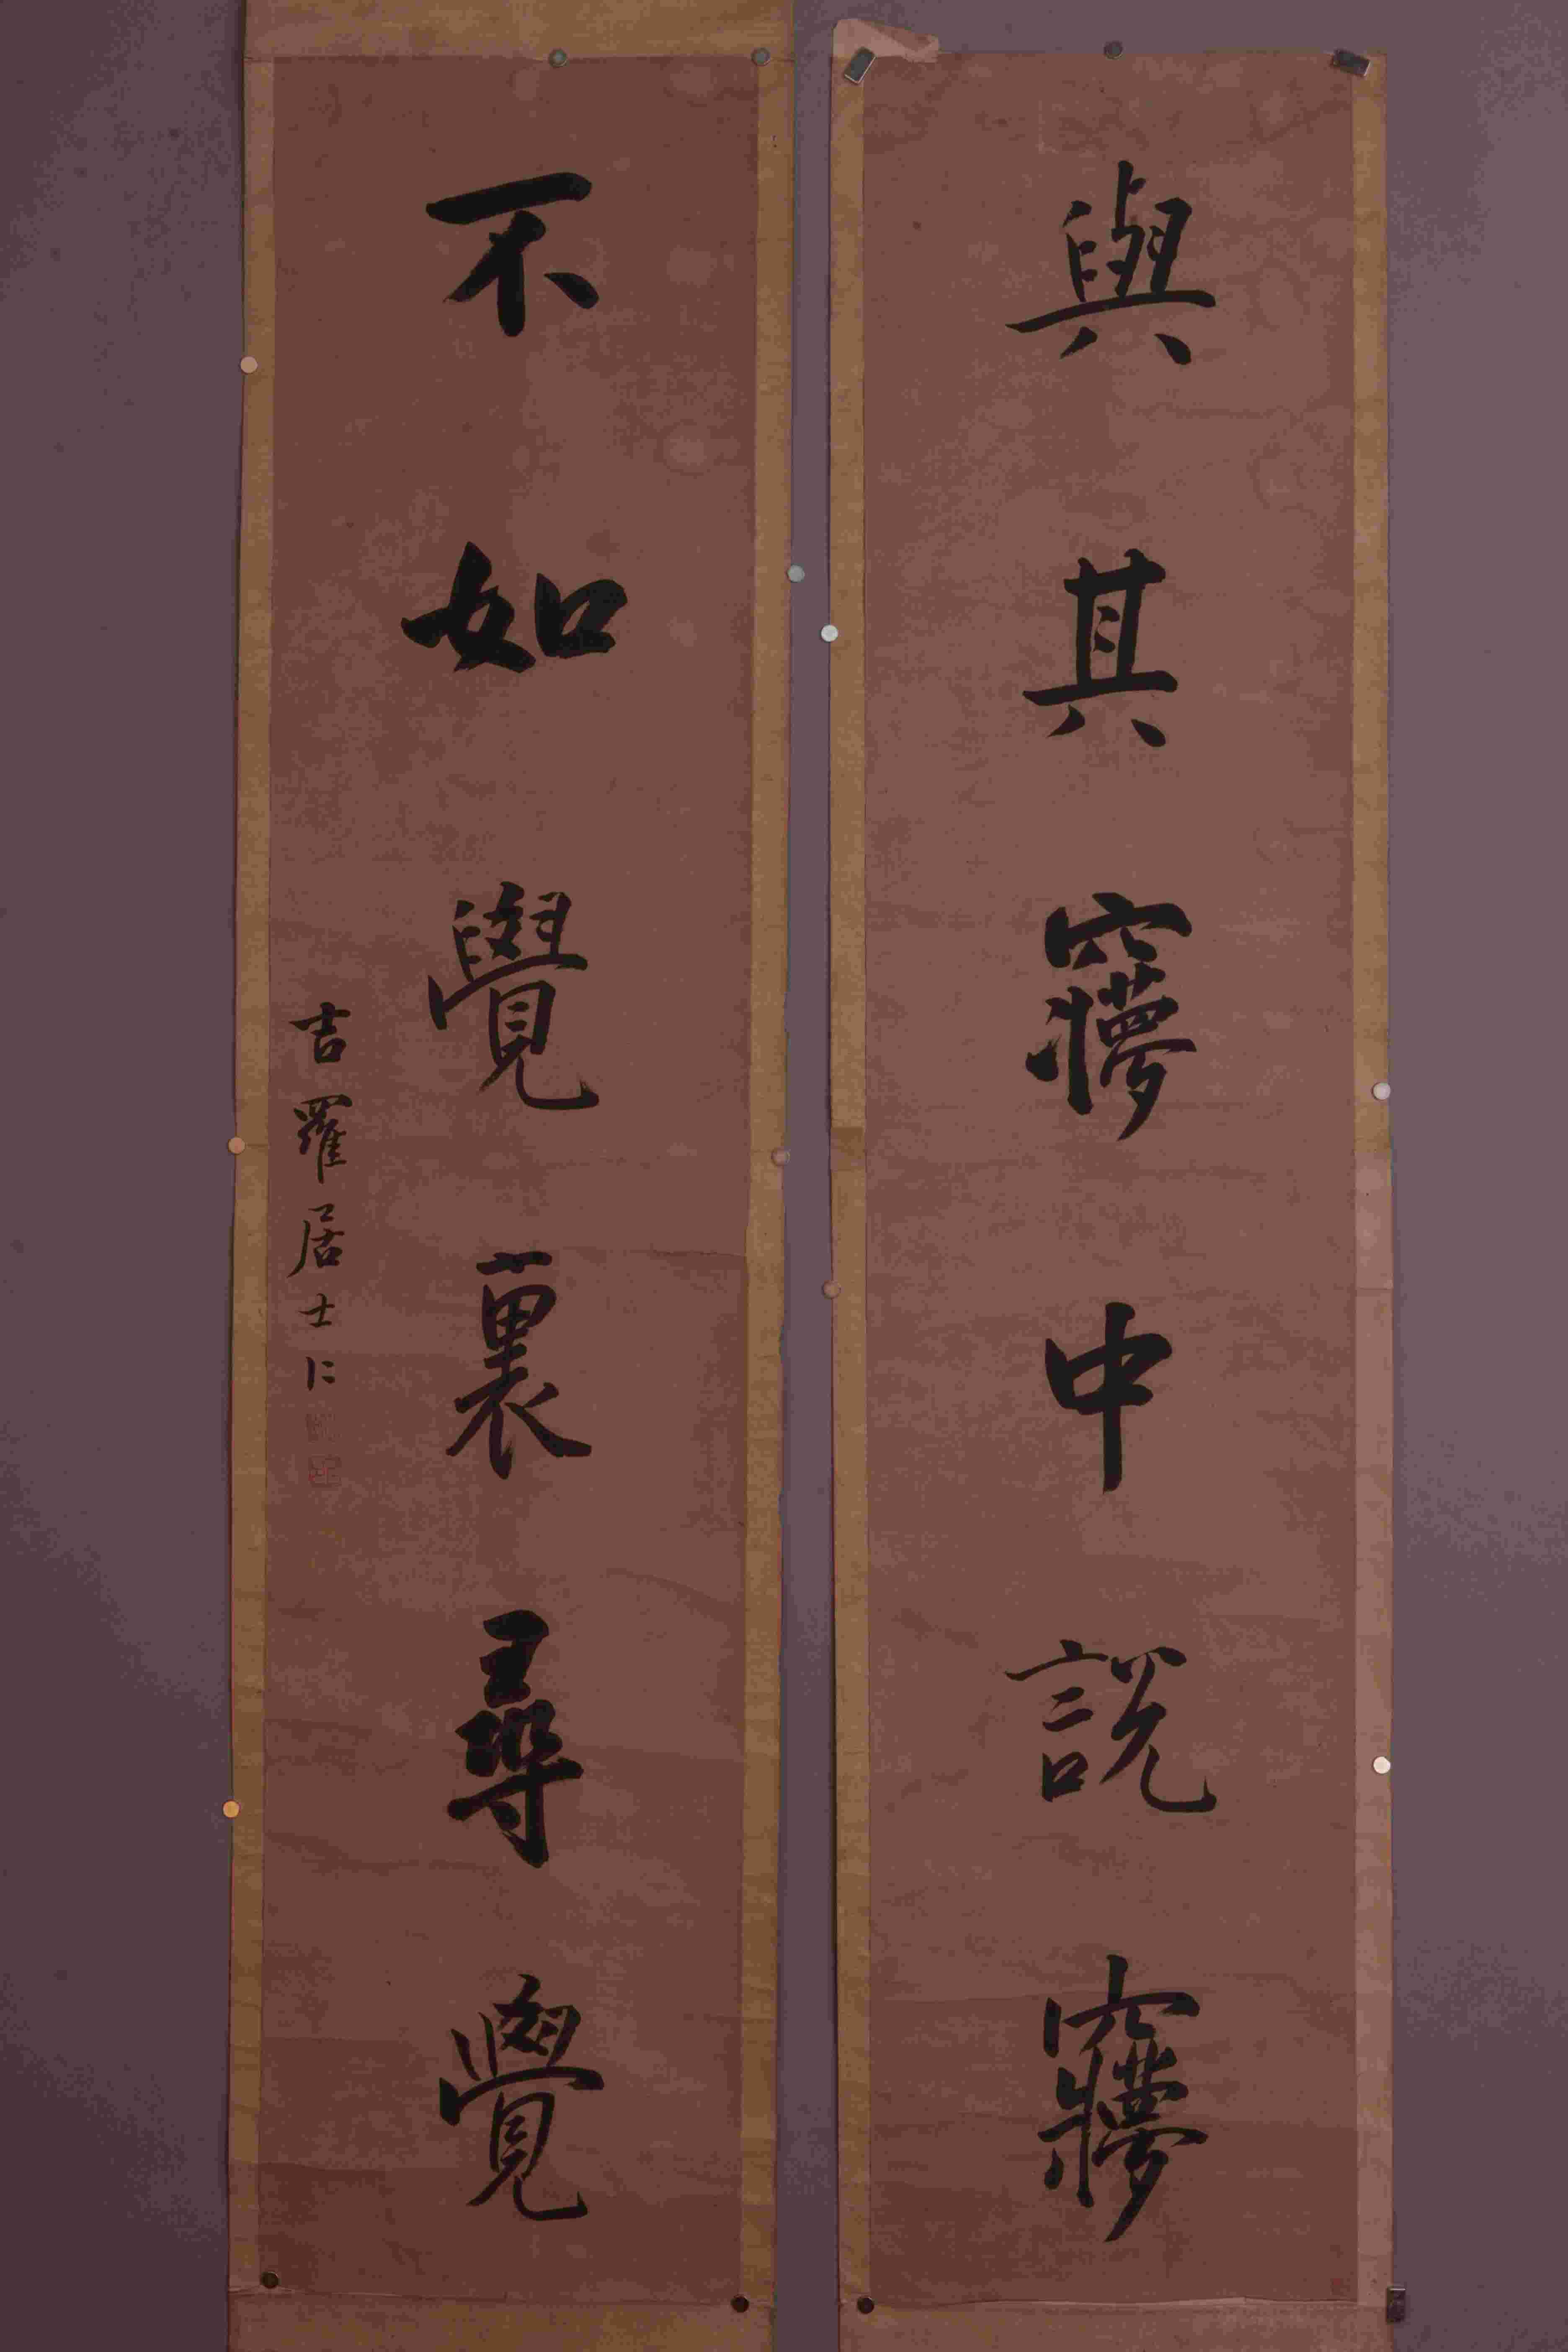 與其㝱中說㝱
不如覺裏尋覺
吉羅居士仁